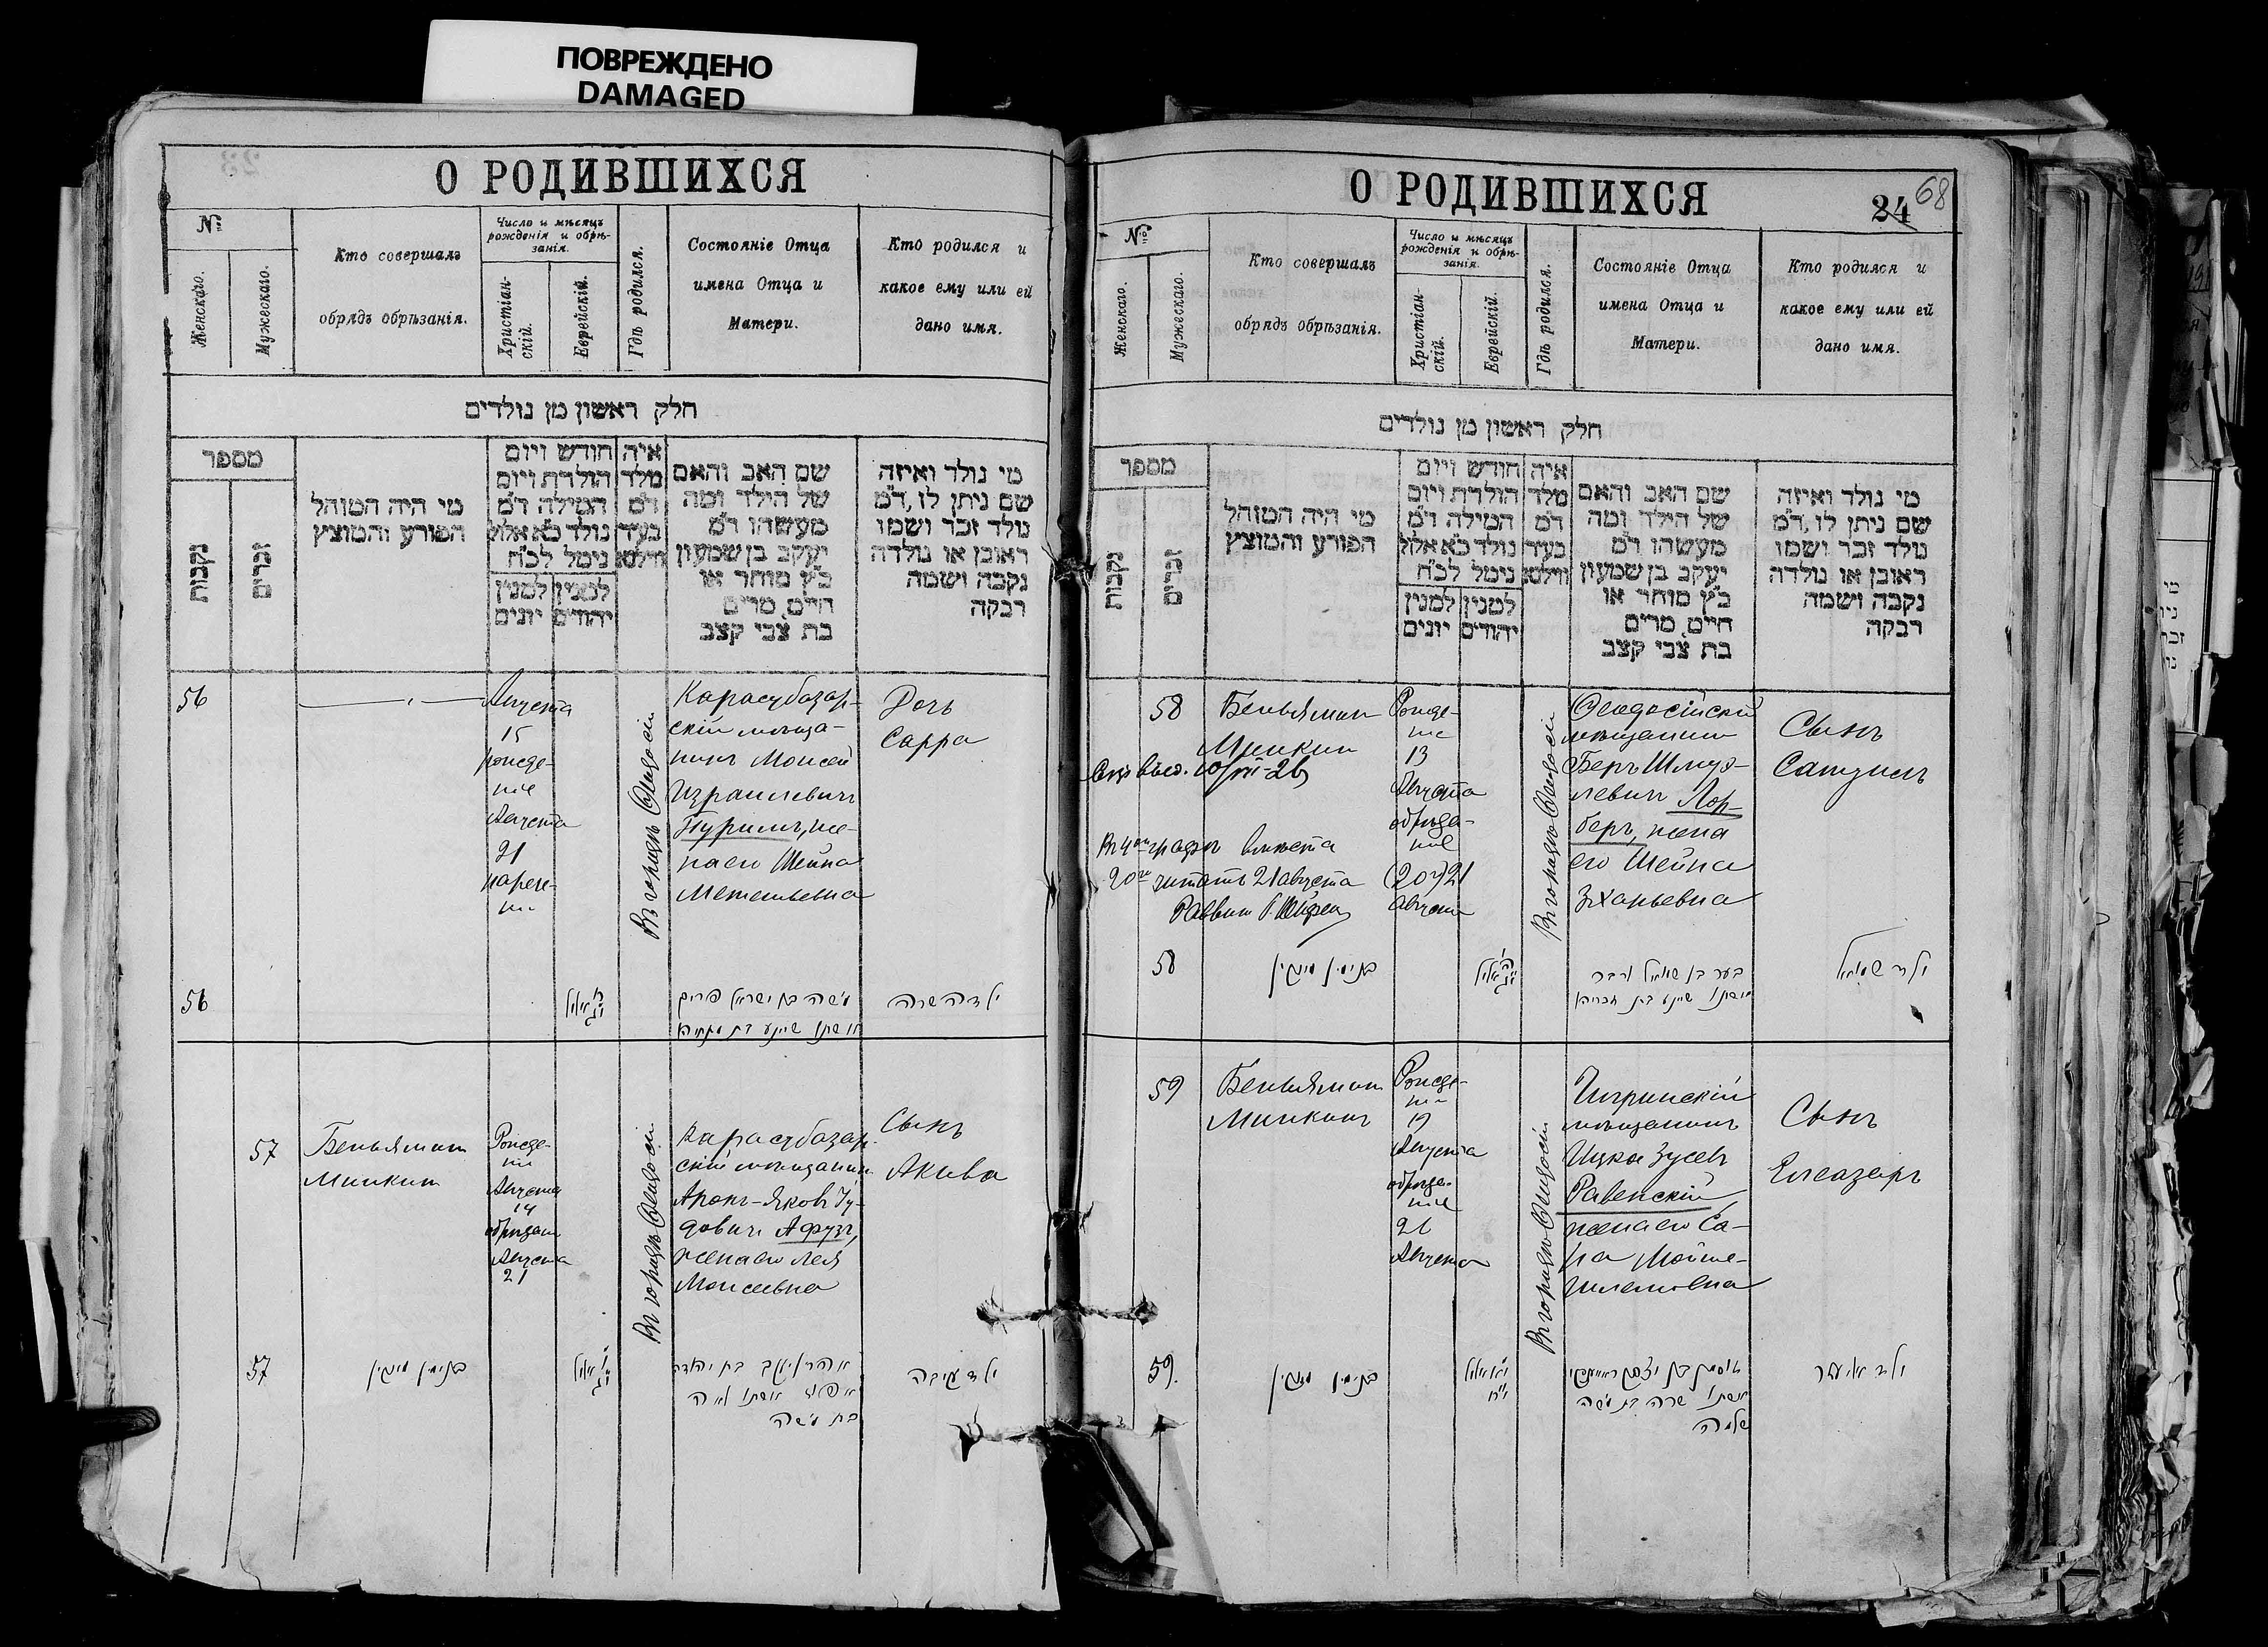 ПОВРЕЖДЕНО
DAMAGED
О РОДИВШИХСЯ
№
Женскаго.
Мужескаго.
Кто совершалъ
обрядъ обрѣзанія.
Число и мѣсяцъ
рожденія и обрѣ-
занія.
Христіан-
скій.
Еврейскій.
Гдѣ родился.
Состояніе Отца
имена Отца и
Матери.
Кто родился и
какое ему или ей
дано имя.
חלק ראשון מן נולדים
מספר
נקבות
זכרים
מי היה המוהל
הפורע והמוצץ
חודש ויום
הולדת ויום
המילה ד״מ
נולד כ״א אלול
נימל לכ״ח
למנין למנין
יהודים יונים
איה
מלד
ד״מ
בעיר
ווילנא
שם האב והאם
של הילד ומה
מעשהו ד״מ
יעקב בן שמעון
כ״ץ סוחר או
חייט, מרים
בת צבי קצב
מי נולד ואיזה
שם ניתן לו, ד״מ
נולד זכר ושמו
ראובן או נולדה
נקבה ושמה
רבקה
56
Августа
15
рожде-
ніе
Августа
21
нареч-
ніе
Въ городѣ Ѳеодосіи
Карасубазар-
скій мѣща-
нинъ Моисей
Израилевичъ
Пуримъ, же-
на его Шейна
Дочь
Сарра
56
ילדה שרה
57
Беньяминъ
Минкинъ
Рожде-
ніе
Августа
14
обрѣзаніе
Августа
21
Въ городѣ Ѳеодосіи
Карасубазар-
скій мѣщанинъ
Аронъ-Яковъ Іу-
довичъ Афузъ,
жена его Лея
Моисеевна
Сынъ
Акива
57
בנימין מינקין
ילד עקיבה
О РОДИВШИХСЯ
24
68
№
Женскаго.
Мужескаго.
Кто совершалъ
обрядъ обрѣзанія.
Число и мѣсяцъ
рожденія и обрѣ-
занія.
Христіан-
скій.
Еврейскій.
Гдѣ родился.
Состояніе Отца
имена Отца и
Матери.
Кто родился и
какое ему или ей
дано имя.
חלק ראשון מן נולדים
מספר
נקבות
זכרים
מי היה המוהל
הפורע והמוצץ
חודש ויום
הולדת ויום
המילה ד״מ
נולד כ״א אלול
נימל לכ״ח
למנין למנין
יהודים יונים
איה
מלד
ד״מ
בעיר
ווילנא
שם האב והאם
של הילד ומה
מעשהו ד״מ
יעקב בן שמעון
כ״ץ סוחר או
חייט, מרים
בת צבי קצב
מי נולד ואיזה
שם ניתן לו, ד״מ
נולד זכר ושמו
ראובן או נולדה
נקבה ושמה
רבקה
58
Беньяминъ
Минкинъ
Въ 4ой графѣ вмѣсто
20го читать 21 августа
Раввинъ
Рожде-
ніе
13
Августа
обрѣза-
ніе
(20го) 21
Августа
Въ городѣ Ѳеодосіи
Ѳеодосійскій
мѣщанинъ
Беръ Шмуэ-
левичъ Лор-
беръ, жена
его Шейна
Зхарьевна
Сынъ
Самуилъ
58
בנימין מינקין
בער בן שמואל לרבר
אשתו שיינע בת זכריה
ילד שמואל
59
Беньяминъ
Минкинъ
Рожде-
ніе
19
Августа
обрѣза-
ніе
26
Августа
Въ городѣ Ѳеодосіи
Чигринскій
мѣщанинъ
Ицко Зусевъ
Равенскій
жена его Са-
ра Мойше-
Шлемовна
Сынъ
Елеазаръ
59.
בנימין מינקין
אשתו שרה בת משה
שלמה
ילד אליעזר